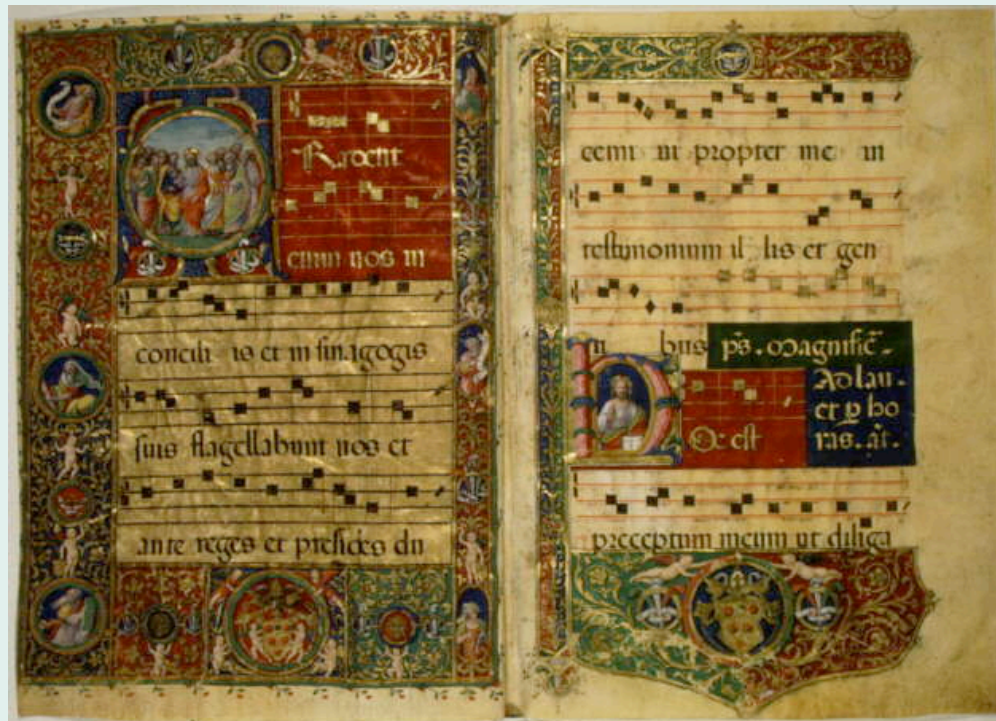 TRadent
enim uos in
concili is et in sinagogis
suis flagellabunt uos et
ante reges et presides du
cemi ni propter me in
testimonium il lis et gen
ti bus ps. Magnific̄.
Ad lau.
et ꝑ ho
ras. añ.
HOc est
preceptum meum ut diliga